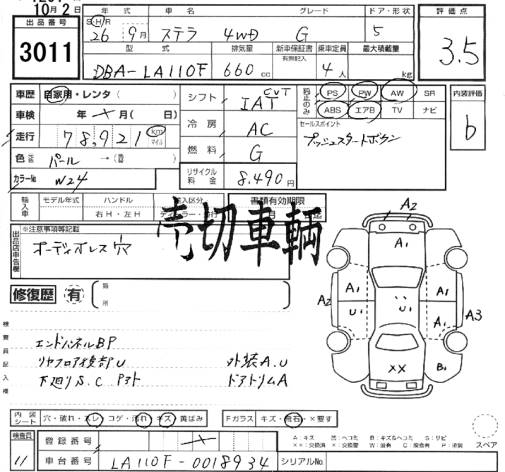 10月2日
出品番号
3011
年式 車名 グレード ドア・形状
S H R
26年 9月 ステラ 4WD G 5
型式 排気量 新車保証書 乗車定員 最大積載量
有無記入
DBA-LA110F 660cc 4人 kg
評価点
3.5
車歴 自家用・レンタ( )
車検 年 × 月( 日)
走行 78,921 km マイル
色 パール →( )
カラーNo W24
シフト IAT CVT
冷房 AC
燃料 G
リサイクル料金 8,490円
純正のみ PS PW AW SR
ABS エアB TV ナビ
セールスポイント
プッシュスタートボタン
内装評価
b
輸入車 モデル年式 ハンドル 輸入区分 書類有効期限
右H・左H ディーラー・並行 月 日迄
売切車輌
出品店申告欄 ※注意事項等記載
オーディオレス穴
修復歴 有 箇所
検査員記入欄
エンドパネルBP
リヤフロア修部U 外装A.U
下廻りS.C ドアトリムA
A2
A1
A2 A1 U1 A1 U1 A1 A3
XX B2
内装シート 穴・破れ・スレ コゲ・汚れ キズ 黄ばみ Fガラス キズ・飛石・×要す
スペア
検査員
11
登録番号 ×
車台番号 LA110F-0018934 シリアルNo
A:キズ U:ヘコミ B:キズ&ヘコミ S:サビ